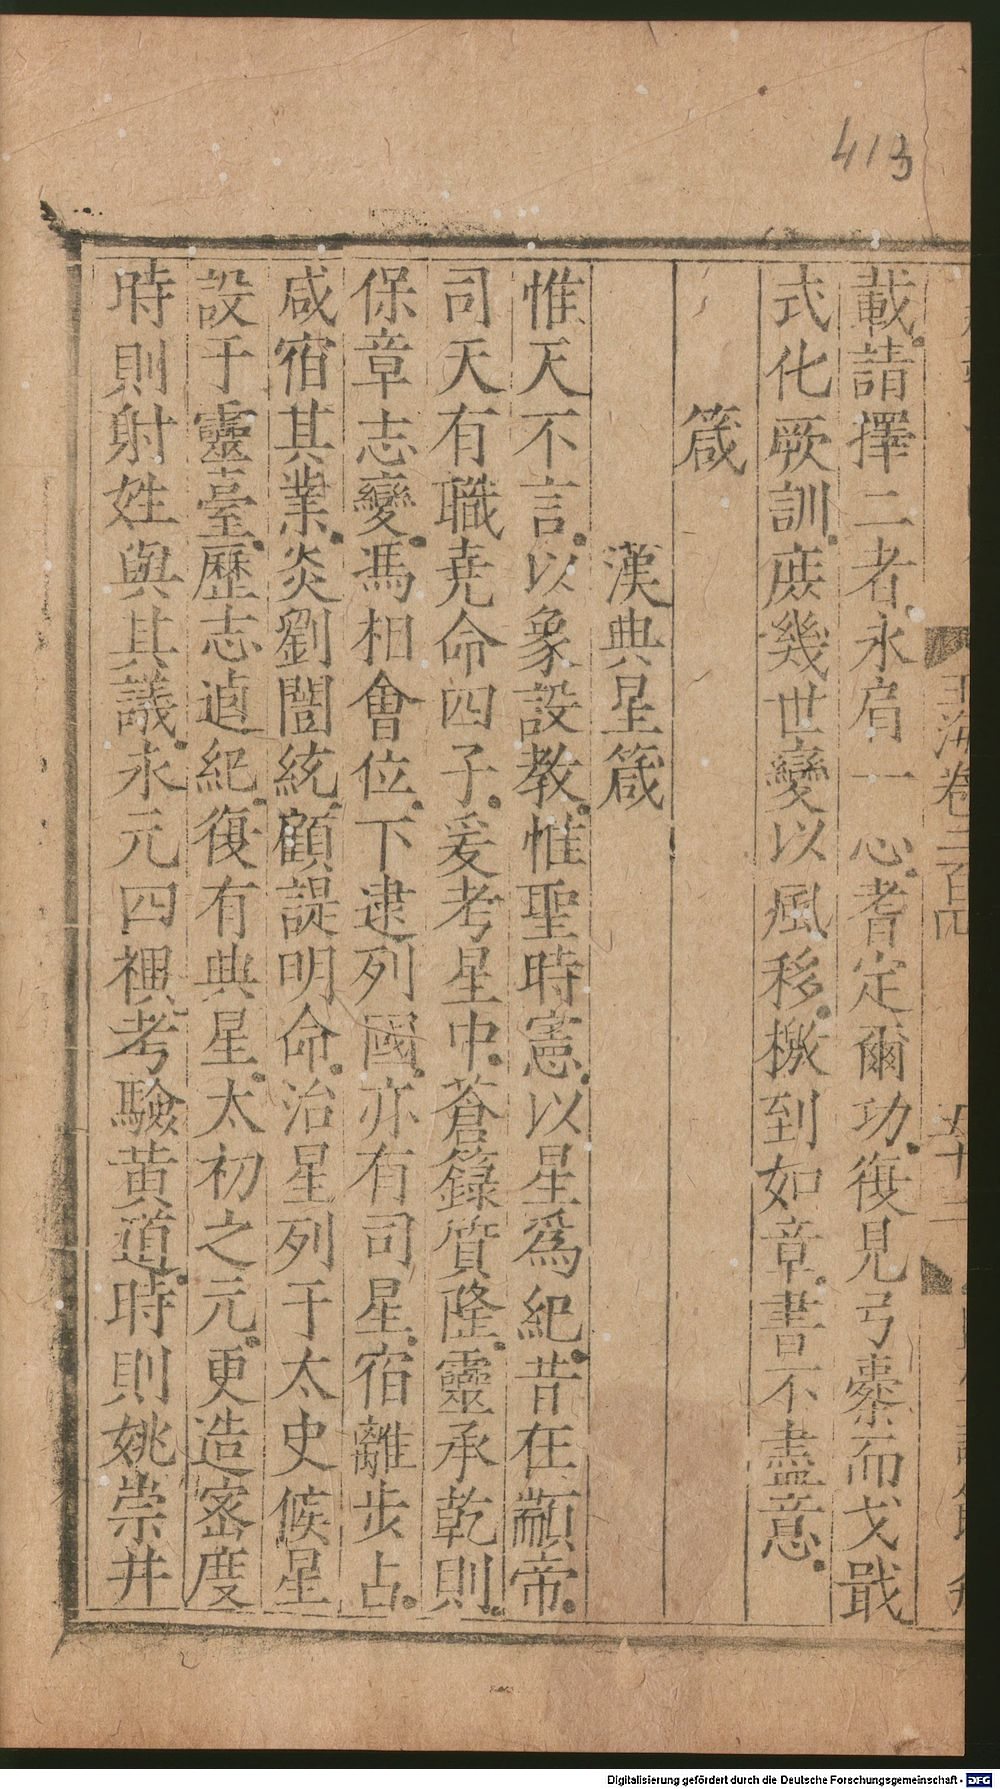 413
玉海卷二百四
載請擇二者永肩一心耆定爾功復見弓櫜而戈戢
式化厥訓庶幾世變以風移檄到如章書不盡意
箴
漢典星箴
惟天不言以象設教惟聖時憲以星爲紀昔在顓帝
司天有職堯命四子爰考星中蒼籙質隆靈承乾則
保章志變馮相會位下逮列國亦有司星宿離步占
咸宿其業炎劉闓統顧諟明命治星列于太史候星
設于靈臺歷志逌紀復有典星太初之元更造密度
時則射姓與其議永元四禩考驗黄道時則姚崇井
Digitalisierung gefördert durch die Deutsche Forschungsgemeinschaft - DFG